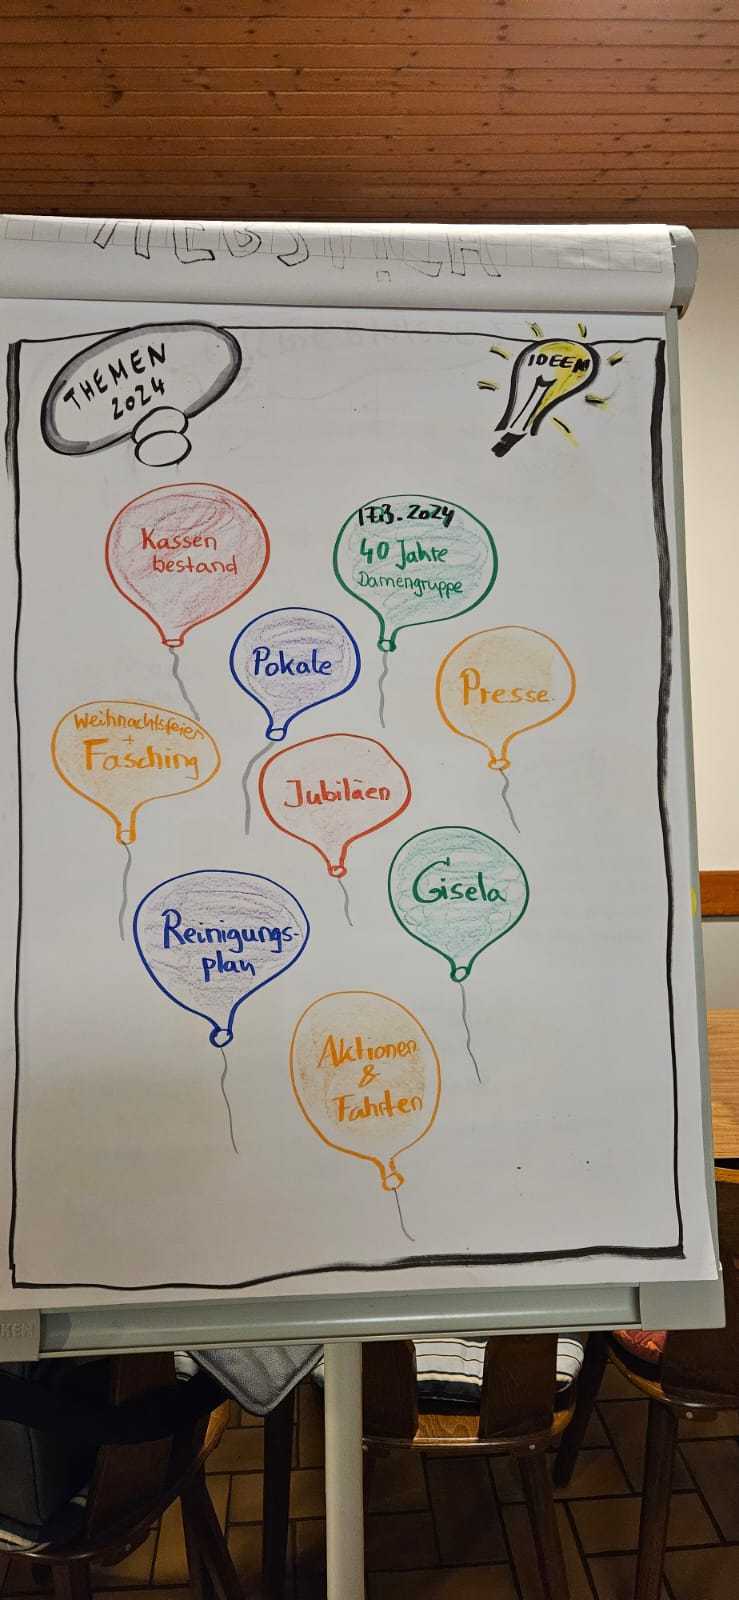 THEMEN
2024
IDEEN
Kassen
bestand
17.3.2024
40 Jahre
Damengruppe
Pokale
Presse
Weihnachtsfeier
+
Fasching
Jubiläen
Gisela
Reinigungs-
plan
Aktionen
&
Fahrten